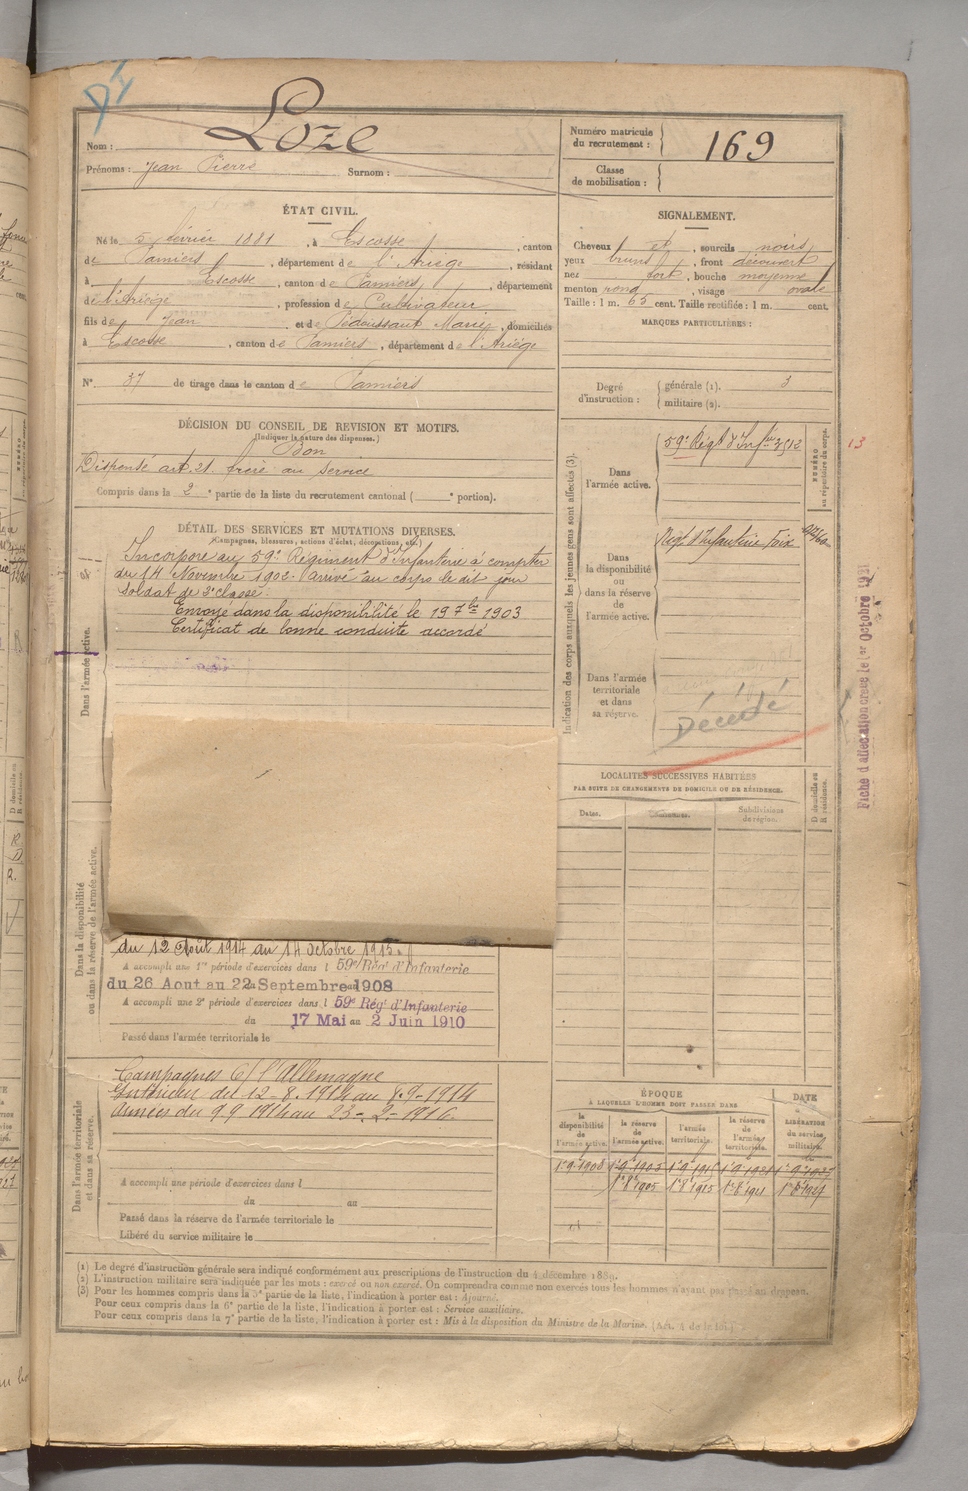 Nom : Loze
Prénoms : Jean Pierre Surnom :
Numéro matricule du recrutement : 169
Classe de mobilisation :
ÉTAT CIVIL.
Né le 5 février 1881, à Escosse, canton
de Pamiers, département de l'Ariège, résidant
à Escosse, canton de Pamiers, département
de l'Ariège, profession de Cultivateur
fils de Jean et de Pédoussaut Marie, domiciliés
à Escosse, canton de Pamiers, département de l'Ariège
N° 37 de tirage dans le canton de Pamiers
SIGNALEMENT.
Cheveux et, sourcils noirs
yeux bruns, front découvert
nez fort, bouche moyenne
menton rond, visage ovale
Taille : 1 m. 65 cent. Taille rectifiée : 1 m. cent.
MARQUES PARTICULIÈRES :
Degré d'instruction : générale (1). 3
militaire (2).
DÉCISION DU CONSEIL DE REVISION ET MOTIFS.
(Indiquer la nature des dispenses.)
Bon
Dispensé art. 21. frère au service
Compris dans la 2e partie de la liste du recrutement cantonal ( e portion).
DÉTAIL DES SERVICES ET MUTATIONS DIVERSES.
(Campagnes, blessures, actions d'éclat, décorations, etc.)
Dans l'armée active.
Incorporé au 59e Régiment d'Infanterie à compter
du 14 Novembre 1902. arrivé au corps le dit jour
soldat de 2e classe.
Envoyé dans la disponibilité le 19 7bre 1903
Certificat de bonne conduite accordé
Dans la disponibilité ou dans la réserve de l'armée active.
du 12 Août 1914 au 14 octobre 1915.
A accompli une 1re période d'exercices dans l 59e Rég' d'Infanterie
du 26 Aout au 22 Septembre 1908
A accompli une 2e période d'exercices dans l 59e Rég' d'Infanterie
du 17 Mai au 2 Juin 1910
Passé dans l'armée territoriale le
Dans l'armée territoriale et dans sa réserve.
Campagnes C/ l'Allemagne
Intérieur du 12-8-1914 au 8-9-1914
Armées du 9 9 1914 au 25-2-1916.
A accompli une période d'exercices dans l
du au
Passé dans la réserve de l'armée territoriale le
Libéré du service militaire le
Indication des corps auxquels les jeunes gens sont affectés (3).
NUMÉRO au répertoire du corps.
Dans l'armée active.
59e Régt d'Infie
13
Dans la disponibilité ou dans la réserve de l'armée active.
Régt d'Infanterie Foix
Dans l'armée territoriale et dans sa réserve.
Décédé
Fiche d'affectation créée le 1er Octobre 1921
LOCALITÉS SUCCESSIVES HABITÉES
PAR SUITE DE CHANGEMENTS DE DOMICILE OU DE RÉSIDENCE.
Dates. Communes. Subdivisions de région.
D domicile ou R résidence.
ÉPOQUE
À LAQUELLE L'HOMME DOIT PASSER DANS
DATE
de
LIBÉRATION du service militaire.
la disponibilité de l'armée active. la réserve de l'armée active. l'armée territoriale. la réserve de l'armée territoriale.
1er 8bre 1905 1er 8bre 1915 1er 8bre 1921 1er 8bre 1927
(1) Le degré d'instruction générale sera indiqué conformément aux prescriptions de l'instruction du 4 décembre 1889.
(2) L'instruction militaire sera indiquée par les mots : exercé ou non exercé. On comprendra comme non exercés tous les hommes n'ayant pas passé au drapeau.
(3) Pour les hommes compris dans la 5e partie de la liste, l'indication à porter est : Ajourné.
Pour ceux compris dans la 6e partie de la liste, l'indication à porter est : Service auxiliaire.
Pour ceux compris dans la 7e partie de la liste, l'indication à porter est : Mis à la disposition du Ministre de la Marine. (Art. 4 de la loi.)